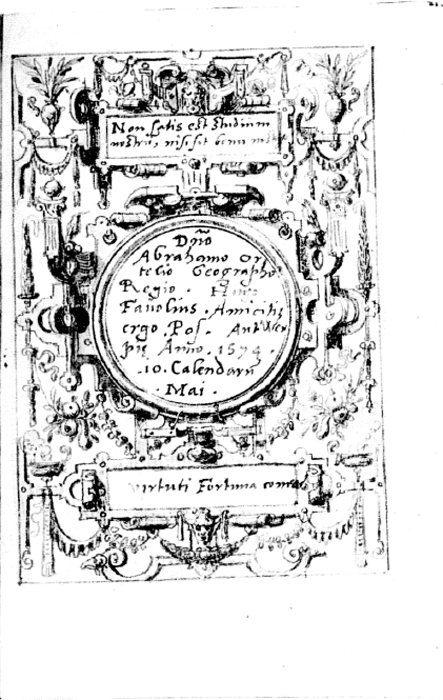 Non satis est studium
nostrum nisi sit
Dño
Abrahamo Or
telio Geographo
Regio . Hugo
Fauolius . Amicitię
ergo . Pos . Antuer
pię Anno . 1574 .
. 10 . Calendarū
. Mai .
virtuti Fortuna comes